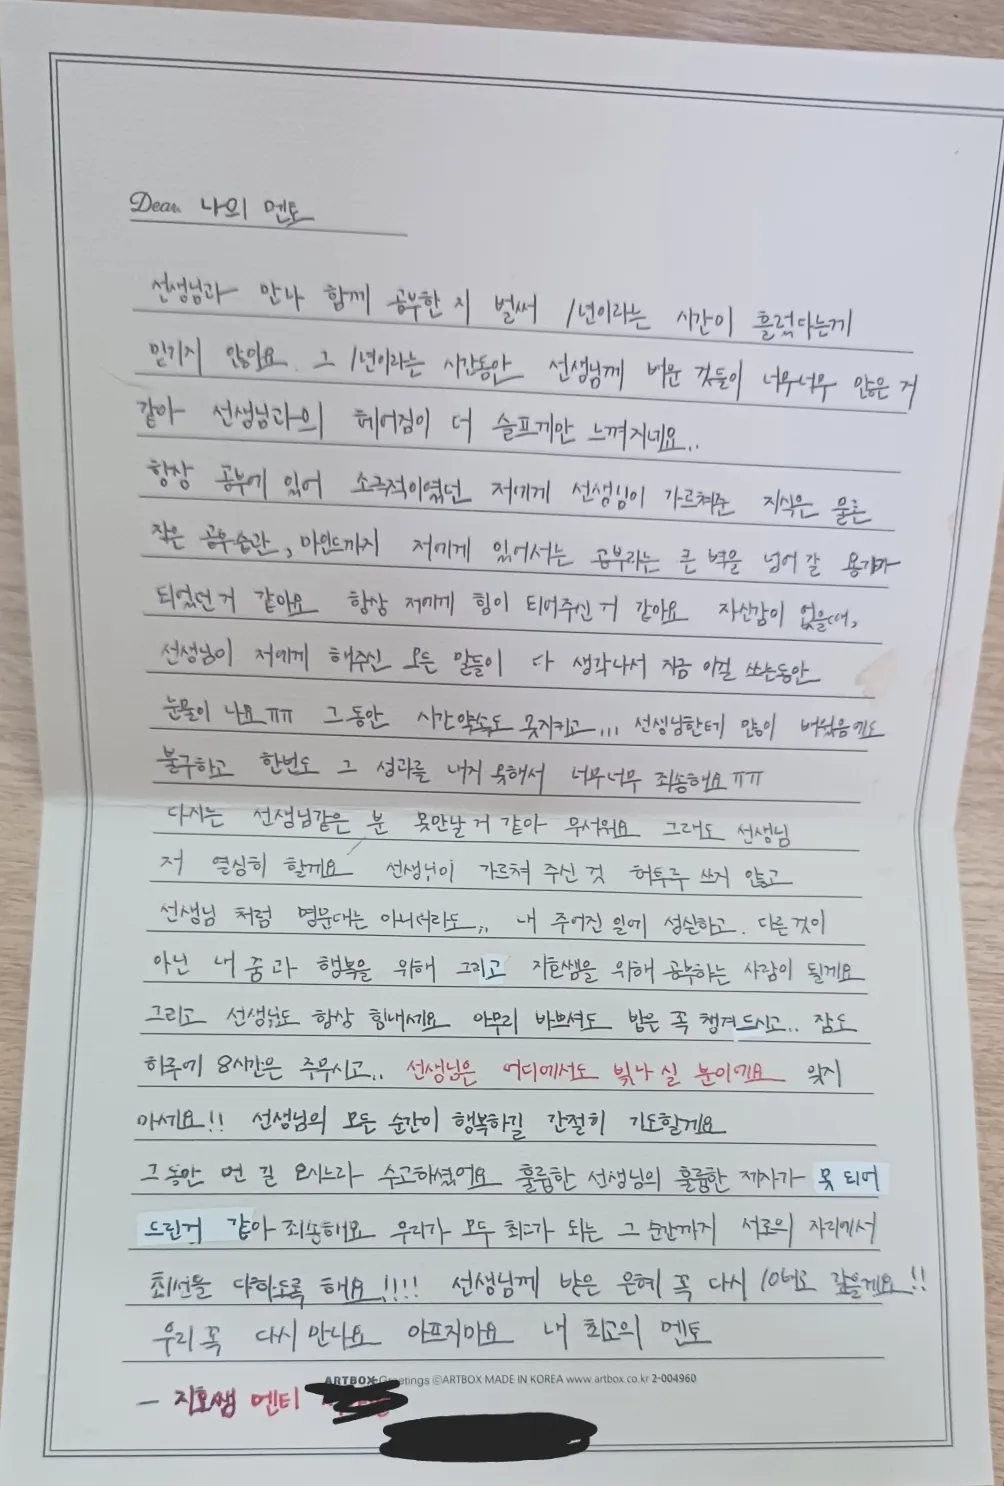 Dear. 나의 멘토
선생님과 만나 함께 공부한 지 벌써 1년이라는 시간이 흘렀다는게
믿기지 않아요. 그 1년이라는 시간동안 선생님께 배운 것들이 너무너무 많은 거
같아 선생님과의 헤어짐이 더 슬프게만 느껴지네요..
항상 공부에 있어 소극적이였던 저에게 선생님이 가르쳐준 지식은 물론
작은 공부습관, 마인드까지 저에게 있어서는 공부라는 큰 벽을 넘어 갈 용기가
되었던 거 같아요 항상 저에게 힘이 되어주신 거 같아요 자신감이 없을때,
선생님이 저에게 해주신 모든 말들이 다 생각나서 지금 이걸 쓰는동안
눈물이 나요ㅠㅠ 그동안 시간약속도 못지키고... 선생님한테 많이 배웠음에도
불구하고 한번도 그 성과를 내지 못해서 너무너무 죄송해요ㅠㅠ
다시는 선생님같은 분 못만날 거 같아 무서워요 그래도 선생님
저 열심히 할께요 선생님이 가르쳐 주신 것 허투루 쓰지 않고
선생님 처럼 명문대는 아니더라도.. 내 주어진 일에 성실하고. 다른것이
아닌 내 꿈과 행복을 위해 그리고 지호쌤을 위해 공부하는 사람이 될게요
그리고 선생님도 항상 힘내세요 아무리 바쁘셔도 밥은 꼭 챙겨드시고.. 잠도
하루에 8시간은 주무시고.. 선생님은 어디에서도 빛나실 분이에요 잊지
마세요!! 선생님의 모든 순간이 행복하길 간절히 기도할게요
그동안 먼 길 오시느라 수고하셨어요 훌륭한 선생님의 훌륭한 제자가 못 되어
드린거 같아 죄송해요 우리가 모두 최고가 되는 그 순간까지 서로의 자리에서
최선을 다하도록 해요!!!! 선생님께 받은 은혜 꼭 다시 10배로 갚을게요!!
우리 꼭 다시 만나요 아프지마요 내 최고의 멘토
ARTBOX Greetings ⓒARTBOX MADE IN KOREA www.artbox.co.kr 2-004960
- 지호쌤 멘티